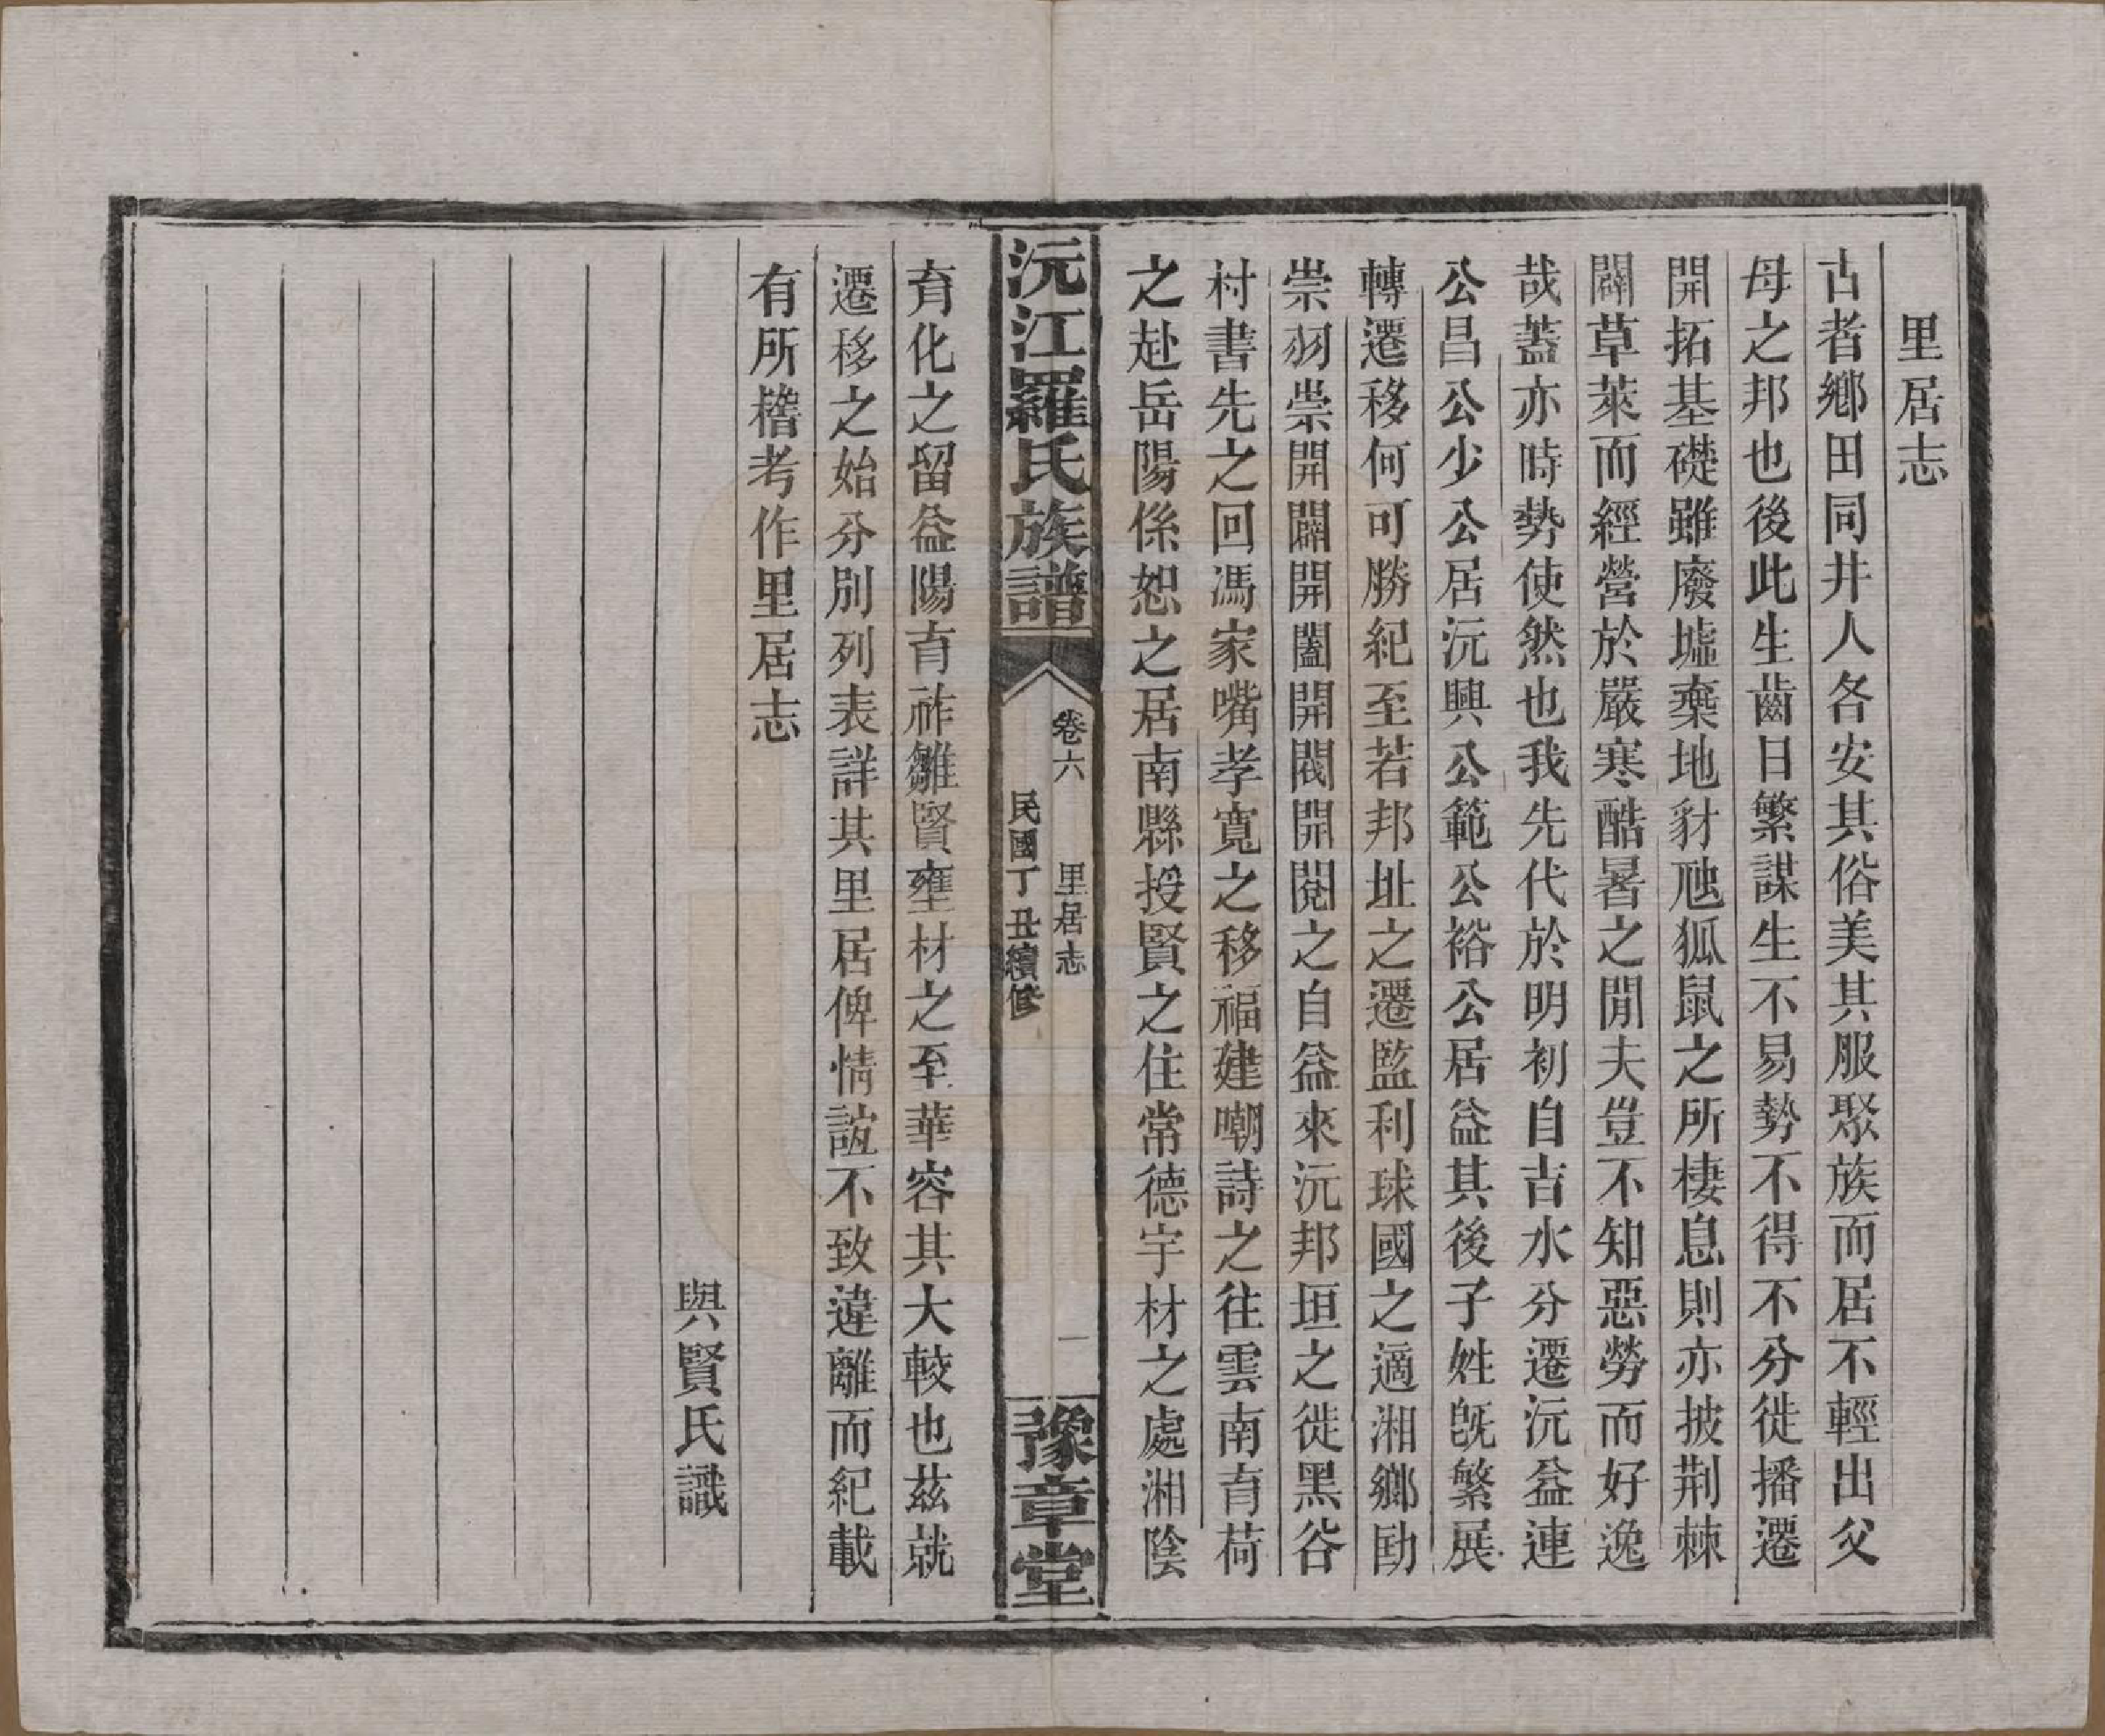 里居志
古者鄉田同井人各安其俗美其服聚族而居不輕出父
母之邦也後此生齒日繁謀生不易勢不得不分徙播遷
開拓基礎雖廢墟棄地豺虺狐鼠之所棲息則亦披荆棘
闢草萊而經營於嚴寒酷暑之間夫豈不知惡勞而好逸
哉蓋亦時勢使然也我先代於明初自吉水分遷沅益連
公昌公少公居沅興公範公裕公居益其後子姓旣繁展
轉遷移何可勝紀至若邦址之遷監利球國之適湘鄉劻
崇羽崇開闢開闔開閥開閱之自益來沅邦垣之徙黑谷
村書先之回馮家嘴孝寬之移福建嘲詩之往雲南育荷
之赴岳陽係恕之居南縣授賢之住常德宇材之處湘陰
沅江羅氏族譜
卷六
里居志
一
民國丁丑續修
豫章堂
育化之留益陽育祚雛賢壅材之至華容其大較也茲就
遷移之始分別列表詳其里居俾情誼不致違離而紀載
有所稽考作里居志
與賢氏識